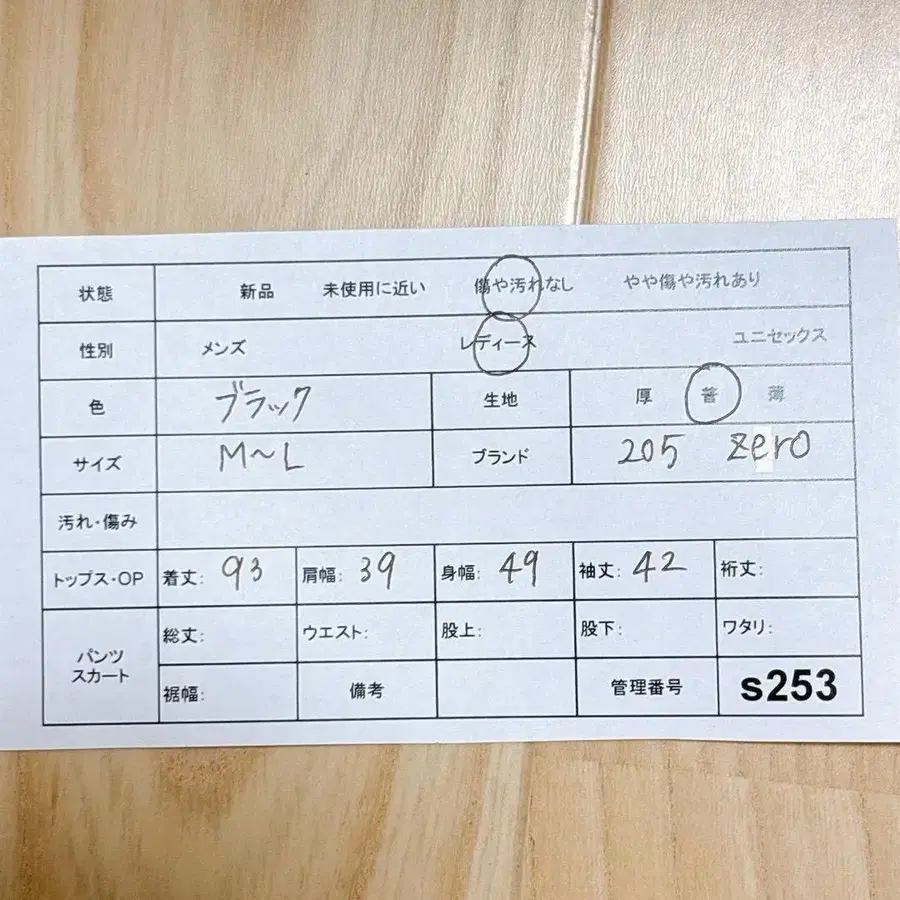 状態 新品 未使用に近い 傷や汚れなし やや傷や汚れあり
性別 メンズ レディース ユニセックス
色 ブラック 生地 厚 普 薄
サイズ M～L ブランド 205 zero
汚れ・傷み
トップス・OP 着丈: 93 肩幅: 39 身幅: 49 袖丈: 42 裄丈:
パンツ スカート 総丈: ウエスト: 股上: 股下: ワタリ:
裾幅: 備考 管理番号 s253